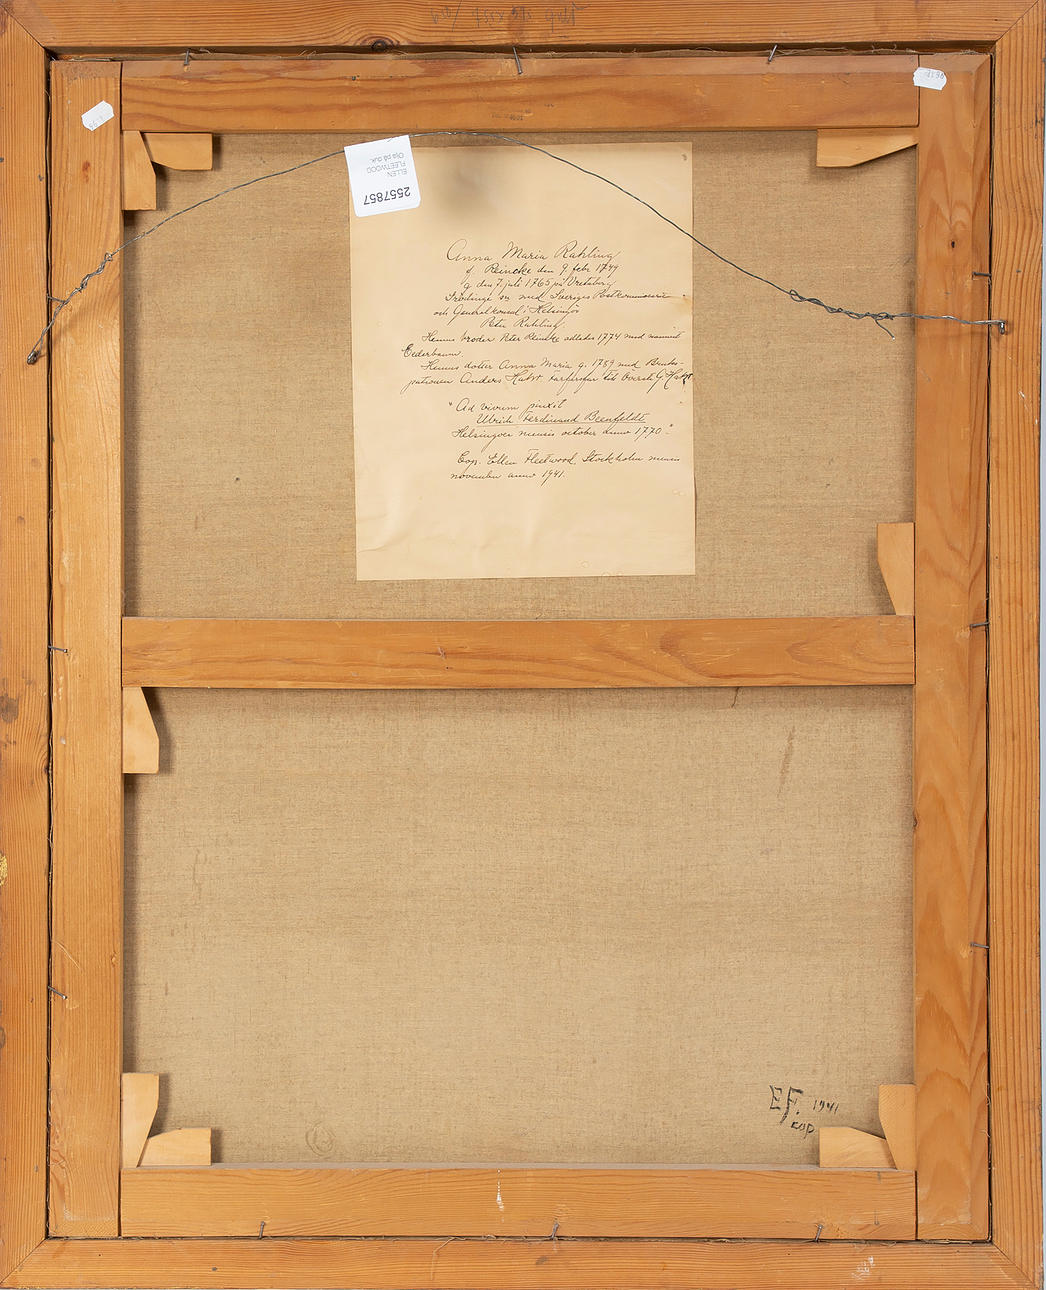 2557857
ELLEN
FLEETWOOD
Olja på duk
Anna Maria Rahling
f. Reincke den 9. febr 1749
g. den 7. juli 1765 på Vretaberg
med Sveriges Postkommissarie
och Generalkonsul i Helsingör
Peter Rahling.
Hennes broder Peter Reincke adlades 1774 med namnet
Cederbaum.
Hennes dotter Anna Maria g. 1789 med Bruks-
patronen Anders farfarsfar till Överste G.
"Ad vivum pinxit
Ulrich Ferdinand Beenfeldt
Helsingoer mensis october anno 1770".
Cop. Ellen Fleetwood, Stockholm mensis
november anno 1941.
E.F. 1941
cop